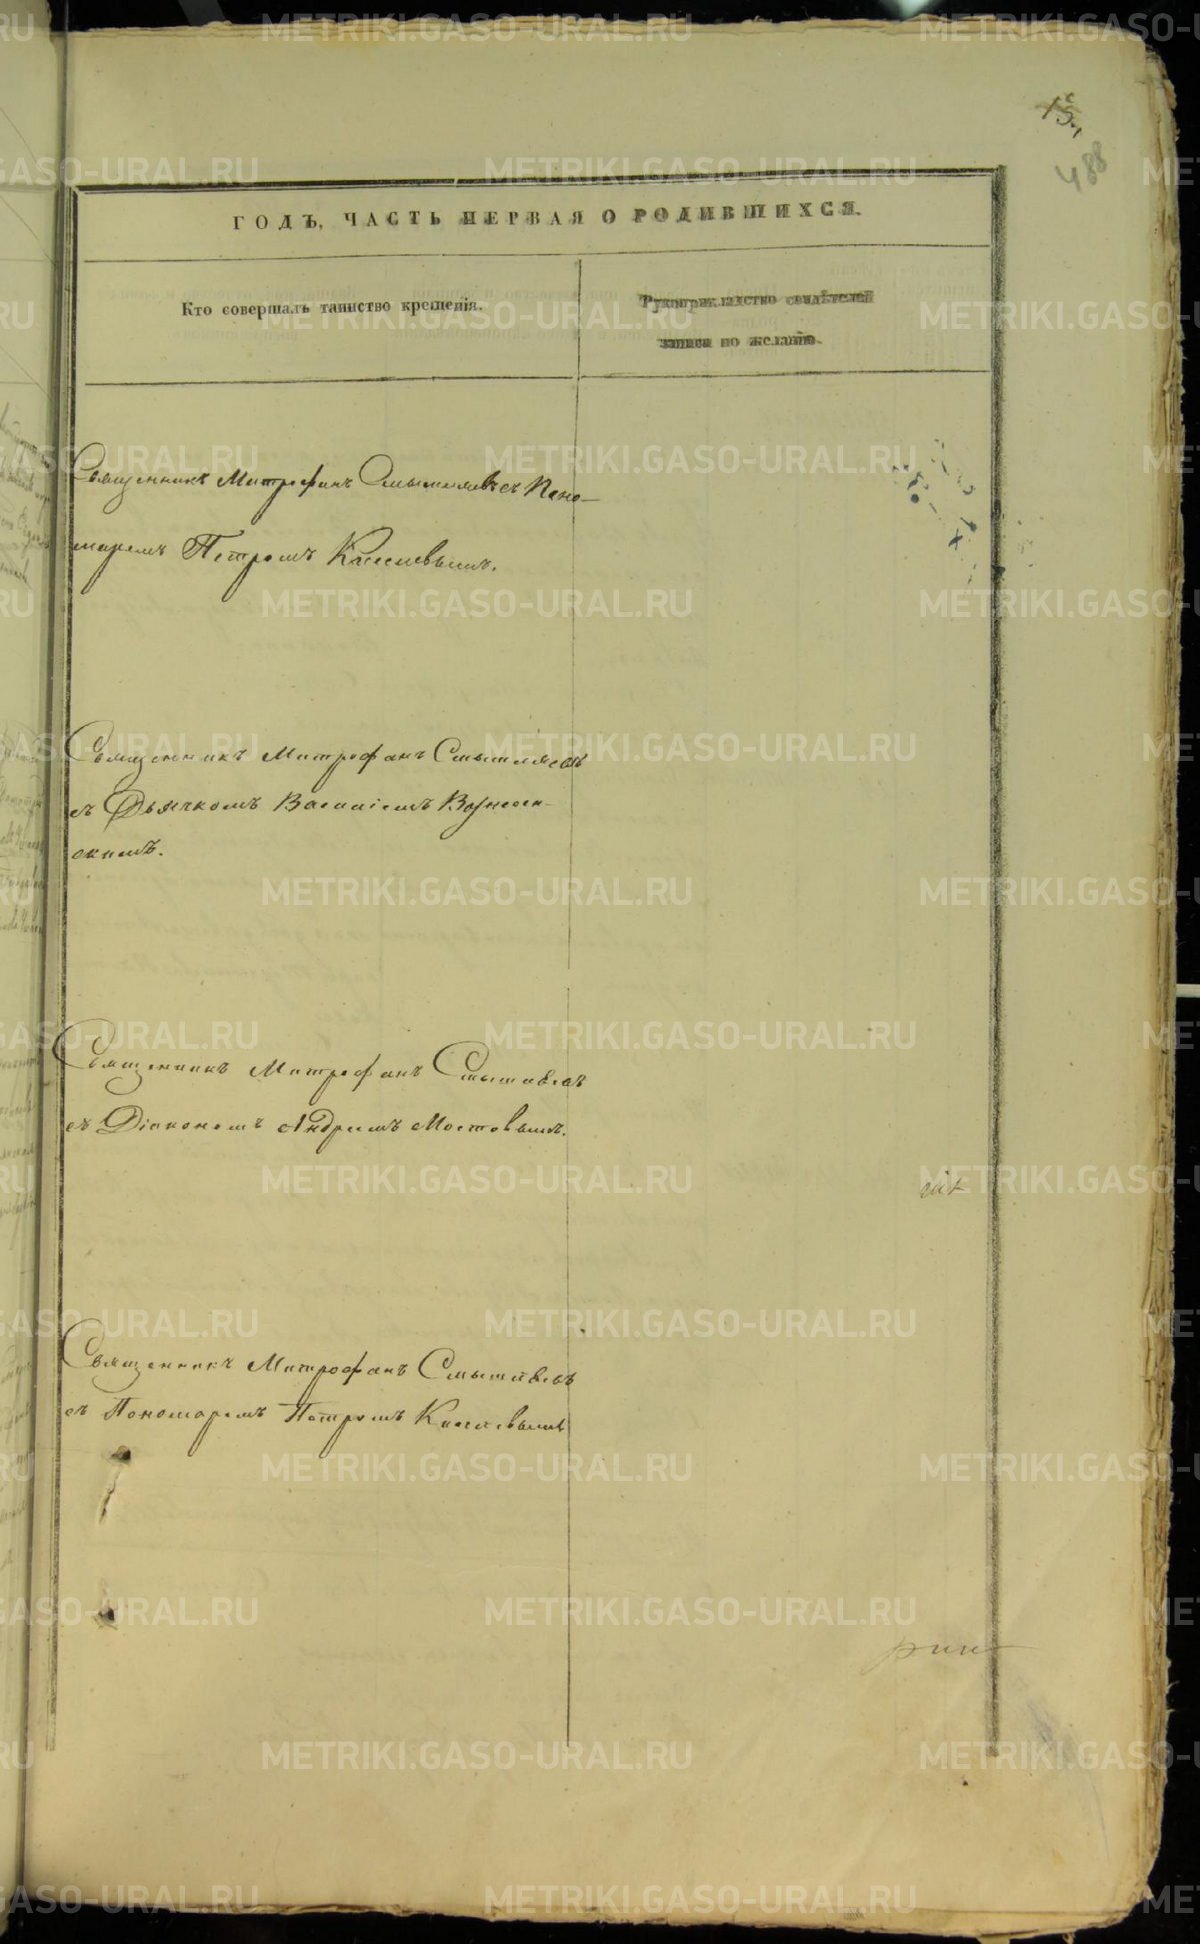 15.
488
ГОДЪ, ЧАСТЬ ПЕРВАЯ О РОДИВШИХСЯ.
Кто совершалъ таинство крещенія.
Рукоприкладство свидѣтелей
записи по желанію.
Священникъ Митрофанъ Смышляевъ съ Поно-
маремъ Петромъ Киселевымъ.
Священникъ Митрофанъ Смышляевъ
съ Дьячкомъ Василіемъ Вознесен-
скимъ.
Священникъ Митрофанъ Смышляевъ
съ Діакономъ Андреемъ Мостовымъ.
Священникъ Митрофанъ Смышляевъ
съ Пономаремъ Петромъ Киселевымъ
METRIKI.GASO-URAL.RU